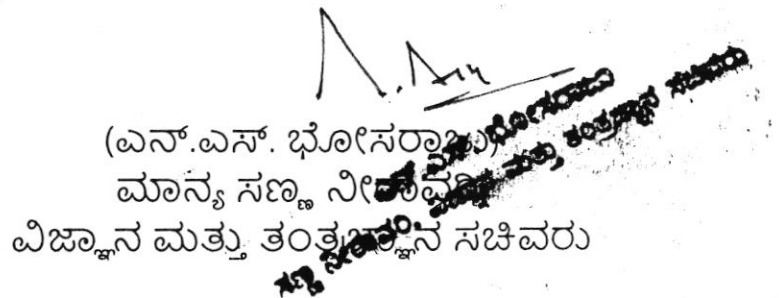 (ಎನ್.ಎಸ್. ಭೋಸರಾಜು)
ಮಾನ್ಯ ಸಣ್ಣ ನೀರಾವರಿ,
ವಿಜ್ಞಾನ ಮತ್ತು ತಂತ್ರಜ್ಞಾನ ಸಚಿವರು
ಎನ್ ಎಸ್ ಭೋಸರಾಜು
ಸಣ್ಣ ನೀರಾವರಿ, ವಿಜ್ಞಾನ ಮತ್ತು ತಂತ್ರಜ್ಞಾನ ಸಚಿವರು